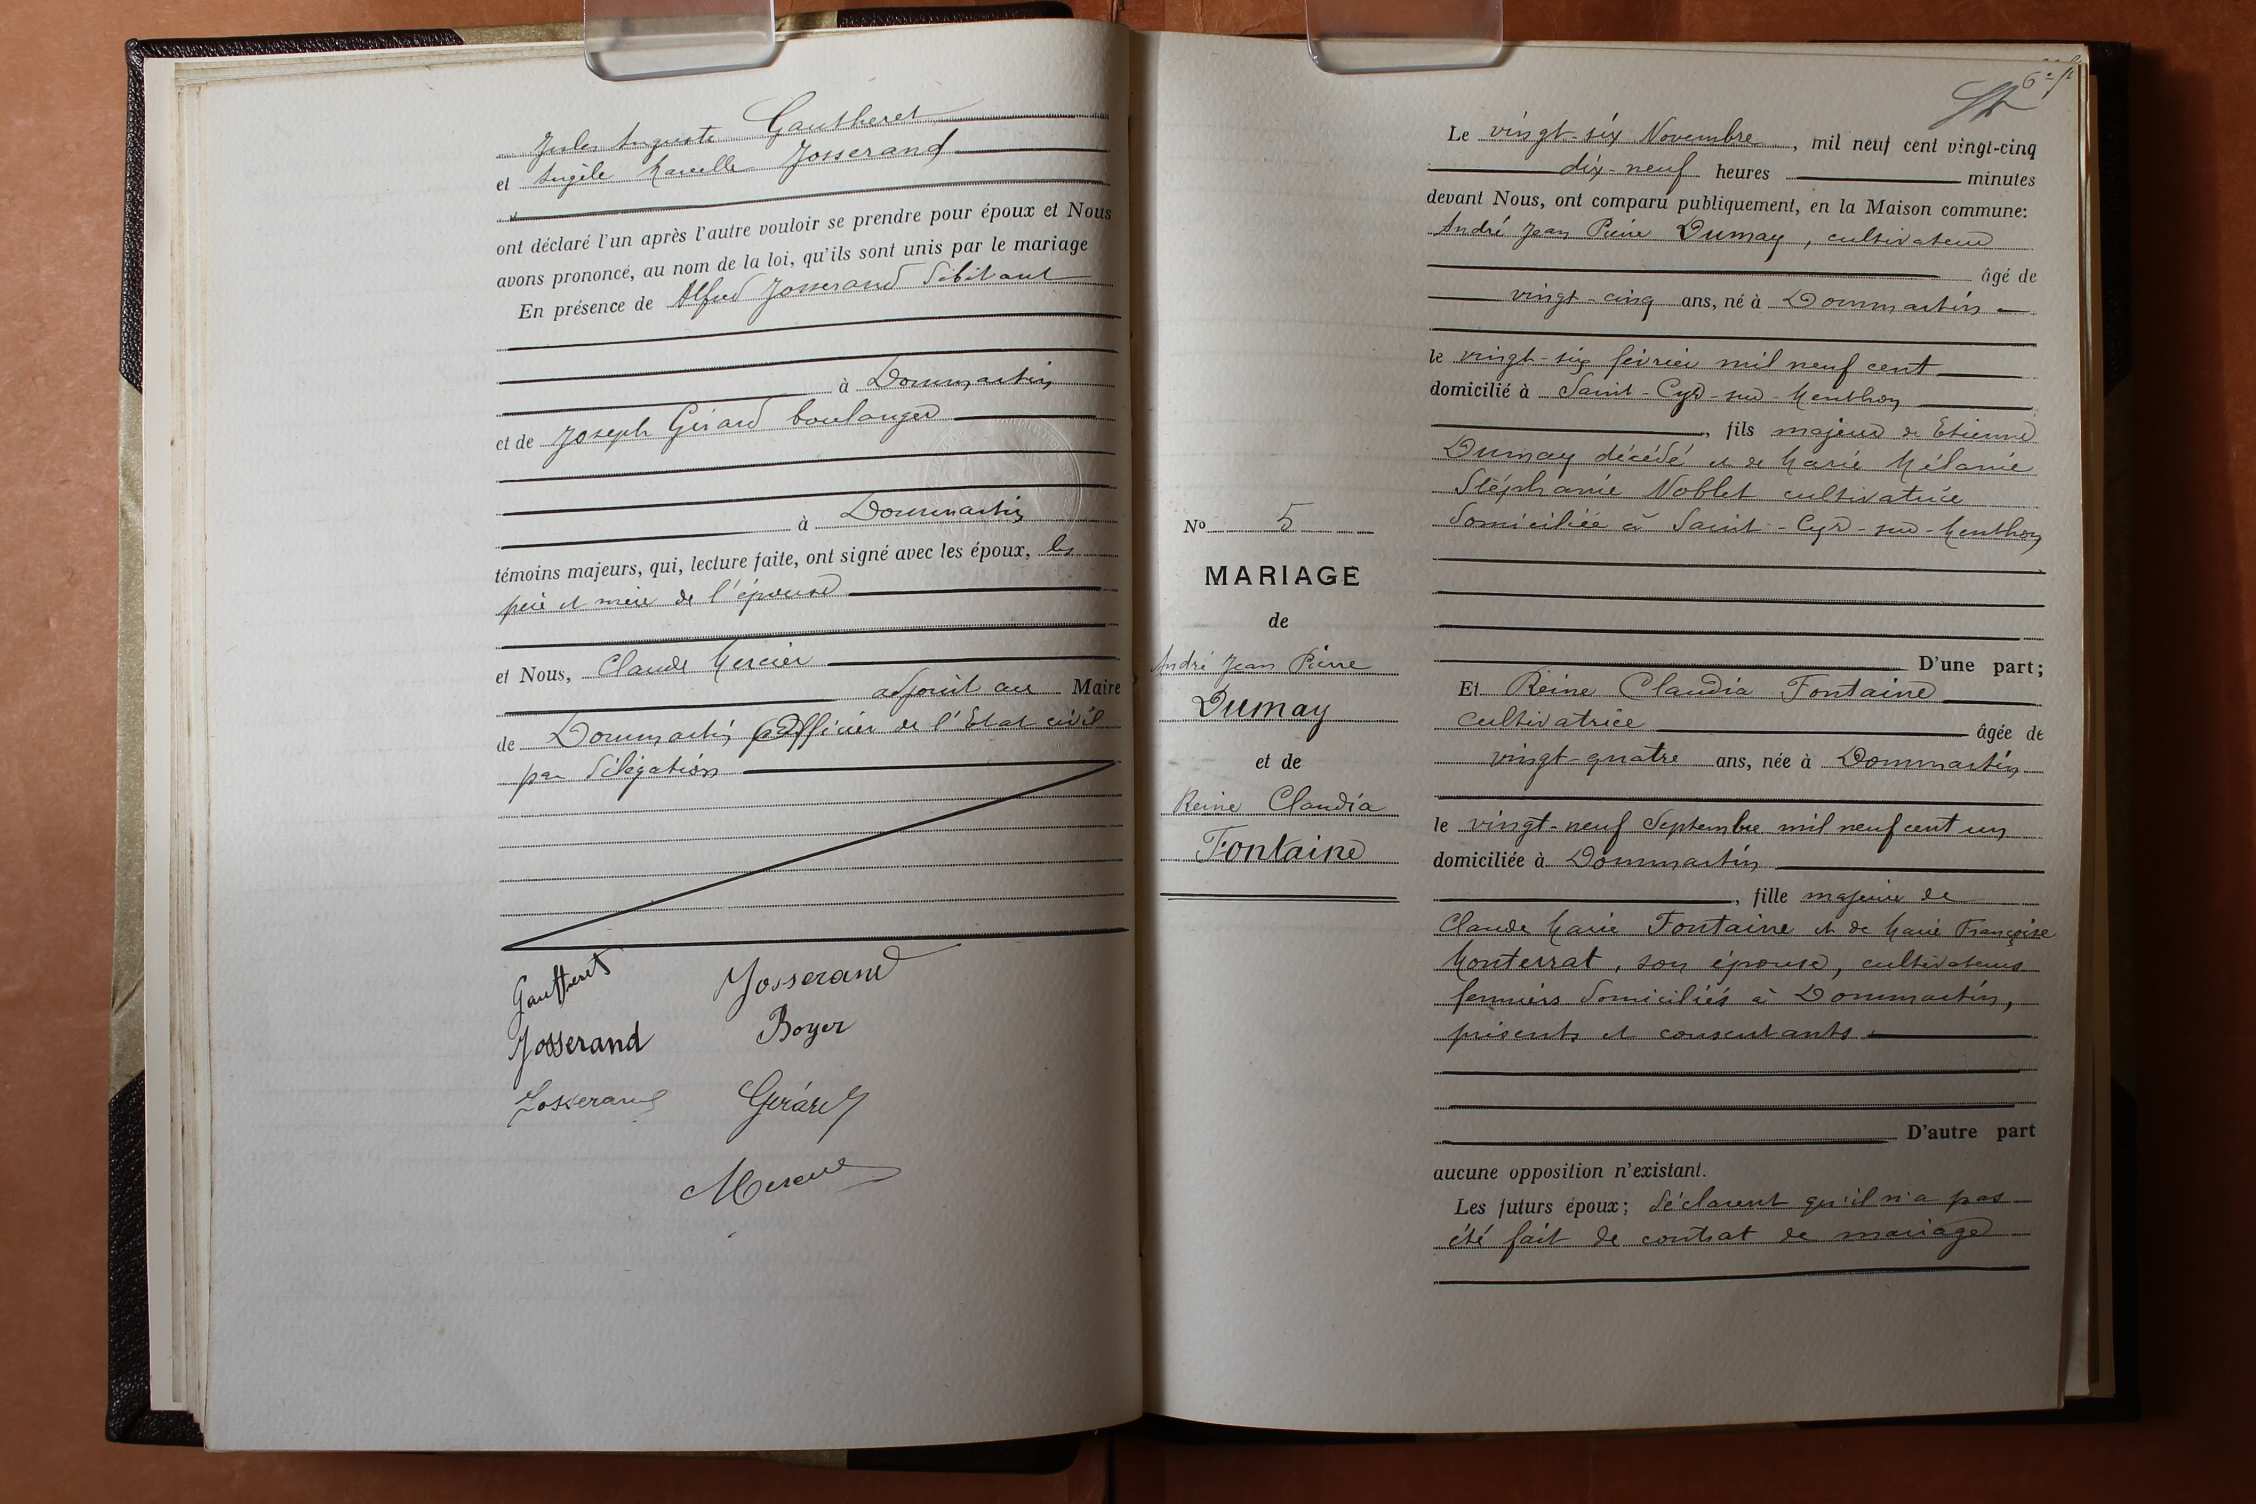 Jules Auguste Gautheret
et Angèle Marcelle Josserand
ont déclaré l'un après l'autre vouloir se prendre pour époux et Nous
avons prononcé, au nom de la loi, qu'ils sont unis par le mariage
En présence de Alfred Josserand débitant
à Dommartin
et de Joseph Gérard boulanger
à Dommartin
témoins majeurs, qui, lecture faite, ont signé avec les époux, les
père et mère de l'épouse
et Nous, Claude Mercier
adjoint au Maire
de Dommartin Officier de l'Etat civil
par délégation
Gautheret Josserand
Josserand Boyer
Josserand Gérard
Mercier
6e
Le vingt-six Novembre, mil neuf cent vingt-cinq
dix-neuf heures minutes
devant Nous, ont comparu publiquement, en la Maison commune:
André Jean Pierre Dumay, cultivateur
âgé de
vingt-cinq ans, né à Dommartin
le vingt-six février mil neuf cent
domicilié à Saint-Cyr-sur-Menthon
, fils majeur de Etienne
Dumay décédé et de Marie Mélanie
Stéphanie Noblet cultivatrice
domiciliée à Saint-Cyr-sur-Menthon
D'une part;
Et Reine Claudia Fontaine
cultivatrice âgée de
vingt-quatre ans, née à Dommartin
le vingt-neuf Septembre mil neuf cent un
domiciliée à Dommartin
, fille majeure de
Claude Marie Fontaine et de Marie Françoise
Monterrat, son épouse, cultivateurs
fermiers domiciliés à Dommartin,
présents et consentants
D'autre part
aucune opposition n'existant.
Les futurs époux; déclarent qu'il n'a pas
été fait de contrat de mariage
No 5
MARIAGE
de
André Jean Pierre
Dumay
et de
Reine Claudia
Fontaine